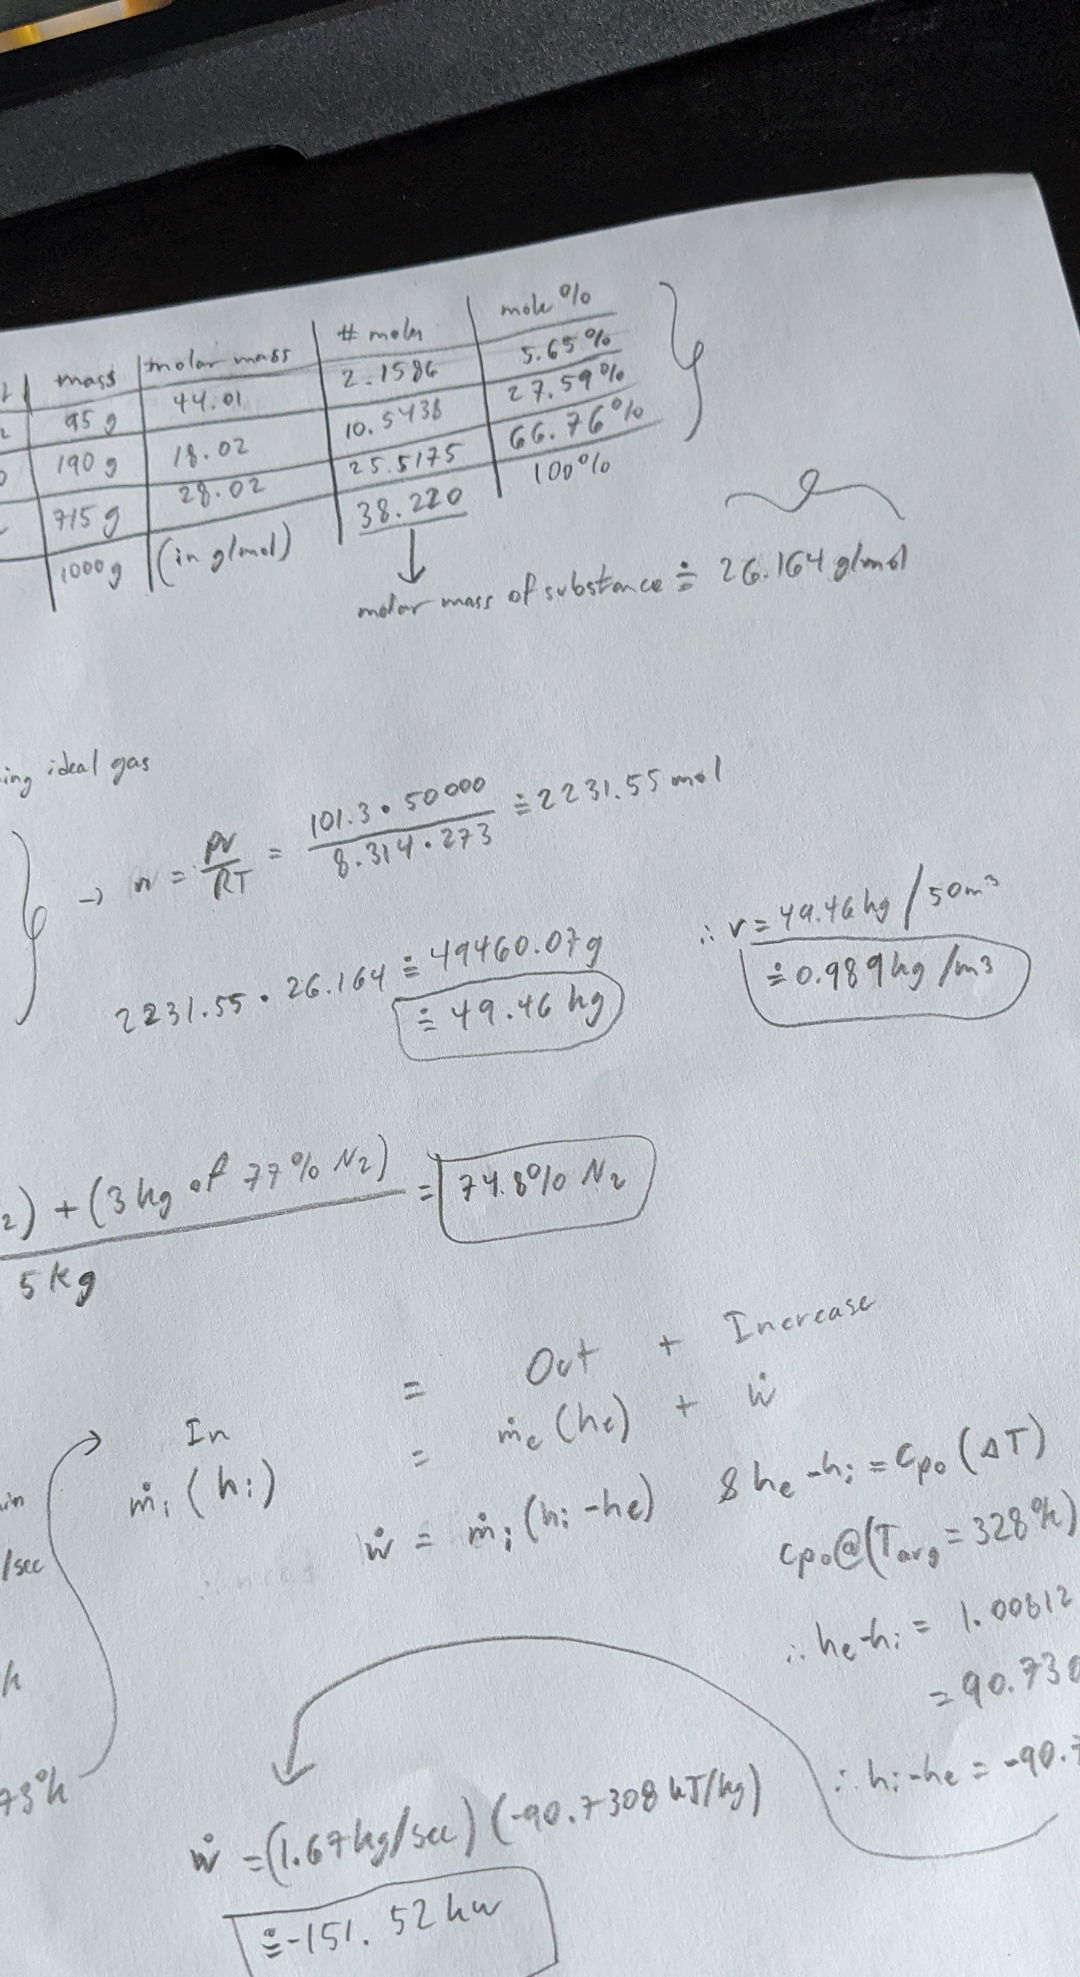 mass | molar mass | # moles | mole %
2 | 95 g | 44.01 | 2.1586 | 5.65%
0 | 190 g | 18.02 | 10.5438 | 27.59%
715 g | 28.02 | 25.5175 | 66.76%
1000 g | (in g/mol) | 38.220 | 100%
molar mass of substance ≐ 26.164 g/mol
ing ideal gas
→ n = PV/RT = 101.3 • 50000 / 8.314 • 273 ≐ 2231.55 mol
2231.55 • 26.164 ≐ 49460.07g
≐ 49.46 kg
∴ r = 49.46 kg / 50m³
≐ 0.989 kg/m3
2) + (3 kg of 77% N2) / 5 kg = 74.8% N2
In = Out + Increase
ṁi (hi) = ṁe (he) + ẇ
ẇ = ṁi (hi - he) & he - hi = Cpo (ΔT)
/sec
Cpo @ (Tavg = 328°k)
∴ he - hi = 1.00812
k
= 90.730
73°k
∴ hi - he = -90.7
ẇ = (1.67 kg/sec) (-90.7308 kJ/kg)
≐ -151.52 kw